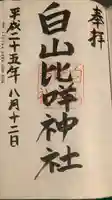 奉拝
白山比咩神社
平成二十五年八月十二日